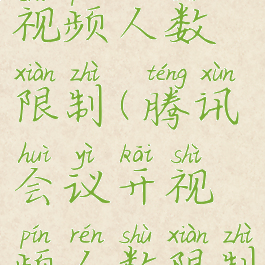 视频人数
xiàn zhì téng xùn
限制(腾讯
huì yì kāi shì
会议开视
pín rén shù xiàn zhì
频人数限制